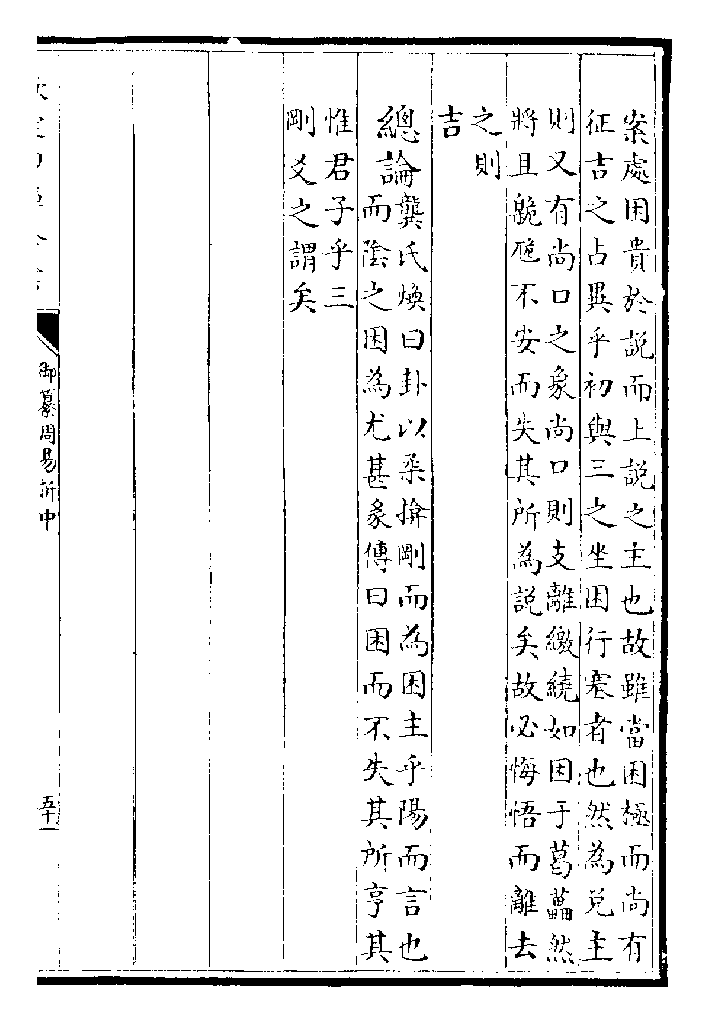 案處困貴於説而上説之主也故雖當困極而尚有
征吉之占異乎初與三之坐困行塞者也然為兑主
則又有尚口之象尚口則支離繳繞如困于葛藟然
將且臲卼不安而失其所為説矣故必悔悟而離去
之則
吉
總論龔氏煥曰卦以柔揜剛而為困主乎陽而言也
而陰之困為尤甚彖傳曰困而不失其所亨其
惟君子乎三
剛爻之謂矣
御纂周易折中
五十一